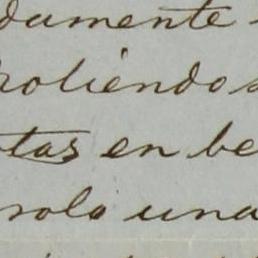 damente
roliendo
tas en be
solo una